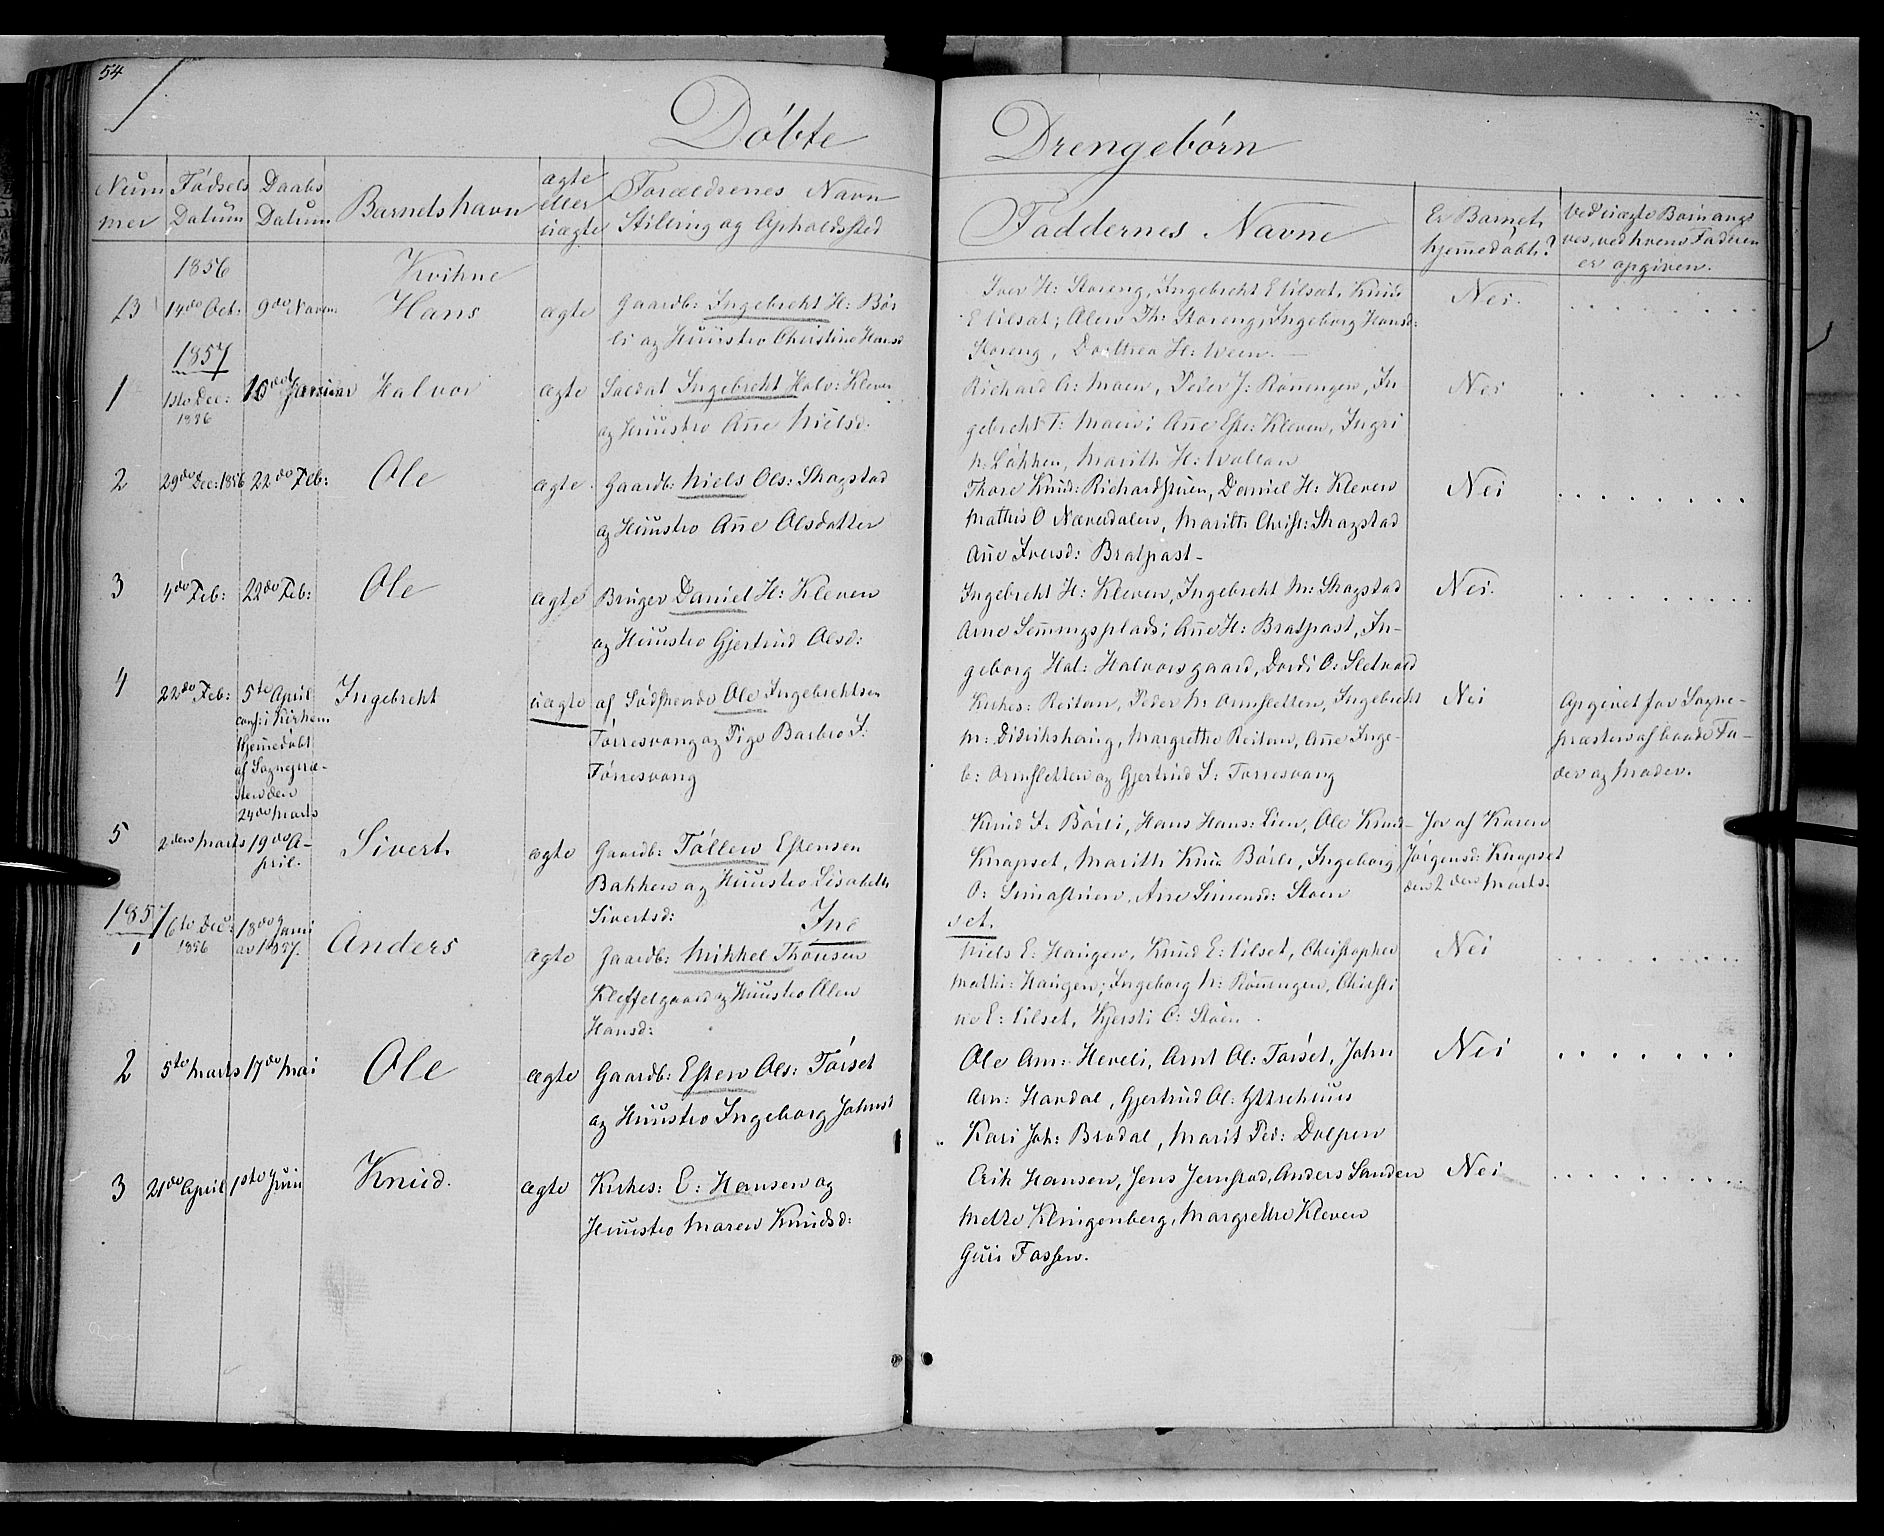 54
Döbte
Drengebörn
Num
mer
Födsels
Datum
Daabs
Datum
Barnets havn
ægte
eller
uægte
Forældrenes Navn
Stilling og Opholdssted
Faddernes Navne
Er Barnet
hjemedöbt?
Ved uægte Börn angi
ves, ved hvem Faderen
er opgiven.
1856
Kvikne
13
14de Oct:
9de Novem:
Hans
ægte
Gaardb: Ingebrecht H: Bör
li og Huustro Christine Hansd
Iver H: Storeng, Ingebrecht E Lilset, Knud
E Lilset; Olew Th: Storeng, Ingeborg Hansd:
Storeng, Dorthea H: Ween.
Nei.
1857
1
1ste Dec:
1856
Januar
Halvor
ægte
Soldat Ingebrecht Halv: Kleven
og Huustro Añe Nielsd.
Richard O: Moen, Peder J: Rönengen, In
gebrecht T: Moen; Añe Este: Kleven, Ingri
N: Lökken, Marith H: Wollan
Nei
2
29de Dec: 1856
22de Feb:
Ole
ægte
Gaardb: Niels Ols: Skogstad
og Huustro Añe Olsdatter
Thore Knud: Richardstuen, Daniel H: Kleven
Mathis O Nævedalen, Marith Christ: Skogstad
Añe Iversd: Bratpast-
Nei
3
4de Feb:
22de Feb:
Ole
ægte
Bruger Daniel H: Kleven
og Huustro Gjertrud Olsd:
Ingebrecht H: Kleven, Ingebrecht M: Skogstad
Arne Semmgsplads; Añe H: Bratpast, In-
geborg Hal: Halvorsgaard, Dordi O: Sletvold
Nei.
4
22de Feb:
5te April
conf: i Kirken
Hjemedöbt
af Sognepræ-
sten den
24de Marts
Ingebrecht
uægte
af Födskende Ole Ingebrechtsen
Torresvang og Pige Barbro I:
Torresvang
Kirkes: Reitan, Peder N: Ormsletten, Ingebrecht
M: Didrikshaug, Margrethe Reitan, Añe Inge-
b: Ormsletten og Gjertrud I: Torresvang
Nei
Opgivet for Sogne-
præsten af baade Fa-
der og Moder.
5
2den Marts
19de A-
pril.
Sivert
ægte
Gaardb: Töllew Estensen
Bakken og Huustro Lisabeth
Sivertsd:
Knud I: Börli, Hans Hans: Lien, Ole Knud-
Knapset, Marith Knu: Börli, Ingeborg
O: Simastuen, Ane Simonsd: Stoen
Ja af Karen
Jörgensd: Knapset
den 2den Marts.
Inset.
1857
1
6te Dec:
1856
18de Janu
ar 1857.
Anders
ægte
Gaardb: Mikkel Thönsen
Kleffelgaard og Huustro Olen
Hansd:
Niels E: Haugen, Knud E: Lilset, Christopher
Mathi: Haugen; Ingeborg N: Rönnengen, Christi
ne E: Lilset, Kjersti O: Stöen
Nei
2
5te Marts
17de Mai
Ole
ægte
Gaardb: Esten Ols: Törset
og Huustro Ingeborg Johnsd
Ole Arn: Heveli, Arnt Ol: Törset, John
Arn: Hordal, Gjertrud Ol: Yttrehuus
Kari Joh: Brodal, Marit Ped: Dolpen
Nei
3
21de April
1ste Juni
Knud.
ægte
Kirkes: E: Hansen og
Huustro Maren Knudsd:
Erik Hansen, Jens Jemstad, Anders Sanden
Mette Klingenberg, Margrethe Kleven
Guri Fossen.
Nei